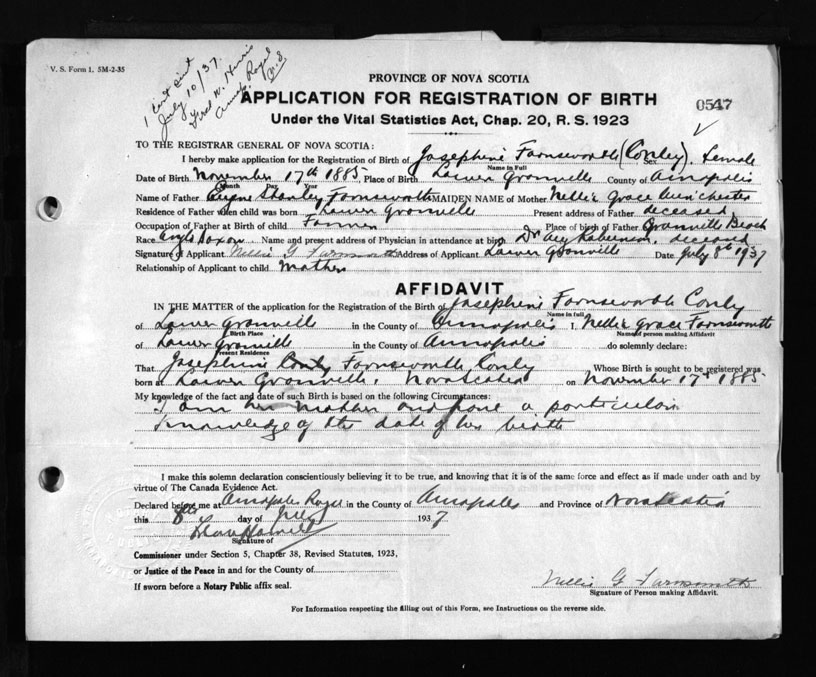 V. S. Form 1. 5M-2-35
July 10/37.
Fred W. Harris
Annap. Royal
N.S
PROVINCE OF NOVA SCOTIA
APPLICATION FOR REGISTRATION OF BIRTH
0547
Under the Vital Statistics Act, Chap. 20, R. S. 1923
TO THE REGISTRAR GENERAL OF NOVA SCOTIA:
I hereby make application for the Registration of Birth of Josephine Farnsworth (Conly). Sex Female
Name in Full
Date of Birth November 17th 1885, Place of Birth Lower Granville County of Annapolis
Month Day Year
Name of Father Eugene Stanley Farnsworth MAIDEN NAME of Mother Nellie Grace Winchester
Residence of Father when child was born Lower Granville Present address of Father deceased
Occupation of Father at Birth of child Farmer Place of birth of Father Granville Beach
Race Anglo Saxon Name and present address of Physician in attendance at birth Dr Aug Robinson, deceased
Signature of Applicant Nellie G Farnsworth Address of Applicant Lower Granville Date July 8th 1937
Relationship of Applicant to child Mother
AFFIDAVIT
IN THE MATTER of the application for the Registration of the Birth of Josephine Farnsworth Conly
Name in full
of Lower Granville in the County of Annapolis I, Nellie Grace Farnsworth
Birth Place Name of person making Affidavit
of Lower Granville in the County of Annapolis do solemnly declare:
Present Residence
That Josephine Conly Farnsworth Conly Whose Birth is sought to be registered was
born at Lower Granville, Nova Scotia on November 17th 1885
My knowledge of the fact and date of such Birth is based on the following Circumstances:
I am her mother and have a particular
knowledge of the date of her birth
I make this solemn declaration conscientiously believing it to be true, and knowing that it is of the same force and effect as if made under oath and by
virtue of The Canada Evidence Act.
Declared before me at Annapolis Royal in the County of Annapolis and Province of Nova Scotia
this 8th day of July 1937
Signature of
Commissioner under Section 5, Chapter 38, Revised Statutes, 1923,
or Justice of the Peace in and for the County of
If sworn before a Notary Public affix seal.
Nellie G Farnsworth
Signature of Person making Affidavit.
For Information respecting the filling out of this Form, see Instructions on the reverse side.